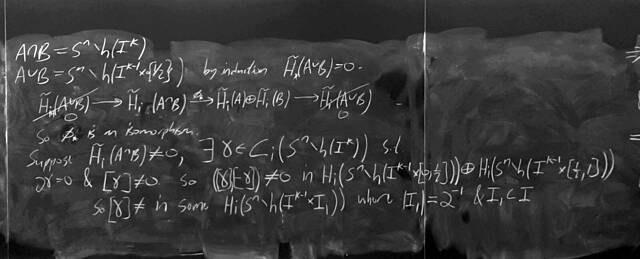 A∩B = Sⁿ∖h(Iᵏ)
A∪B = Sⁿ∖h(Iᵏ⁻¹×{1/2}) by induction H̃ₙ(A∪B)=0.
H̃ᵢ₊₁(A∪B) → H̃ᵢ(A∩B) → H̃ᵢ(A)⊕H̃ᵢ(B) → H̃ᵢ(A∪B)
0 0
So is an isomorphism.
Suppose H̃ᵢ(A∩B)≠0, ∃ γ∈Cᵢ(Sⁿ∖h(Iᵏ)) s.t
∂γ=0 & [γ]≠0 so ([γ],[-γ])≠0 in Hᵢ(Sⁿ∖h(Iᵏ⁻¹×[0,½]))⊕Hᵢ(Sⁿ∖h(Iᵏ⁻¹×[½,1]))
so [γ]≠ in some Hᵢ(Sⁿ∖h(Iᵏ⁻¹×I₁)) where |I₁|=2⁻¹ & I₁⊂I